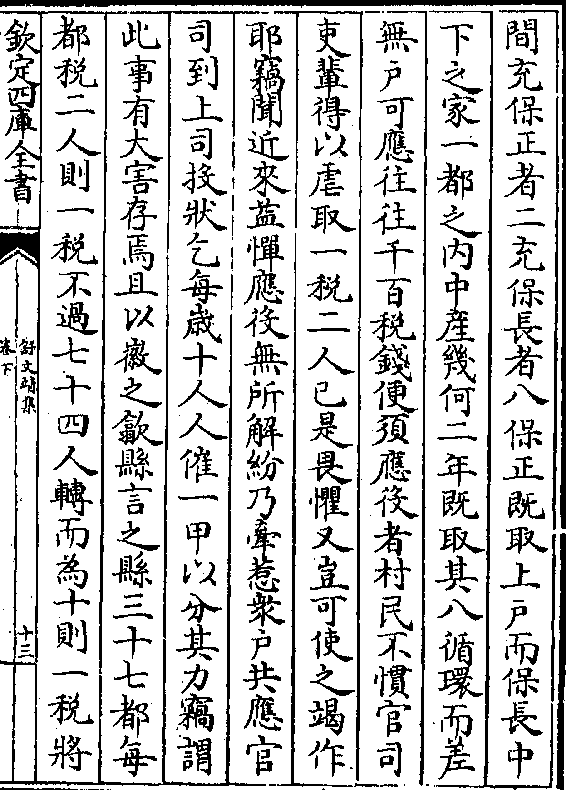 間充保正者二充保長者八保正既取上户而保長中
下之家一都之内中産幾何二年既取其八循環而差
無户可應往往千百税錢便須應役者村民不慣官司
吏輩得以虐取一税二人已是畏懼又豈可使之竭作
耶竊聞近來益憚應役無所解紛乃牽惹衆户共應官
司到上司投狀乞每歲十人人催一甲以分其力竊謂
此事有大害存焉且以徽之歙縣言之縣三十七都每
都税二人則一税不過七十四人轉而為十則一税將
欽定四庫全書
舒文靖集
卷下
十三